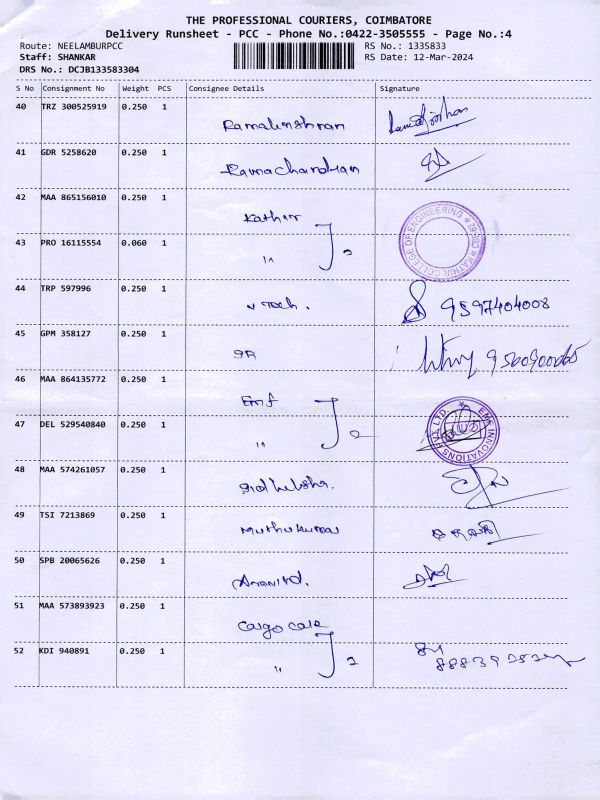 THE PROFESSIONAL COURIERS, COIMBATORE
Delivery Runsheet - PCC - Phone No.:0422-3505555 - Page No.:4
Route: NEELAMBURPCC RS No.: 1335833
Staff: SHANKAR RS Date: 12-Mar-2024
DRS No.: DCJB133583304
S No Consignment No Weight PCS Consignee Details Signature
40 TRZ 300525919 0.250 1
41 GDR 5258620 0.250 1 Ramachandran
42 MAA 865156010 0.250 1 Kathir
KATHIR COLLEGE OF ENGINEERING
43 PRO 16115554 0.060 1 " 2
44 TRP 597996 0.250 1 v Tech. 9597404008
45 GPM 358127 0.250 1 SR
46 MAA 864135772 0.250 1 Emf
EMF INNOVATIONS LTD
47 DEL 529540840 0.250 1 " 2
48 MAA 574261057 0.250 1
49 TSI 7213869 0.250 1 Muthukumar
50 SPB 20065626 0.250 1
51 MAA 573893923 0.250 1 Cargo care
52 KDI 940891 0.250 1 " 2